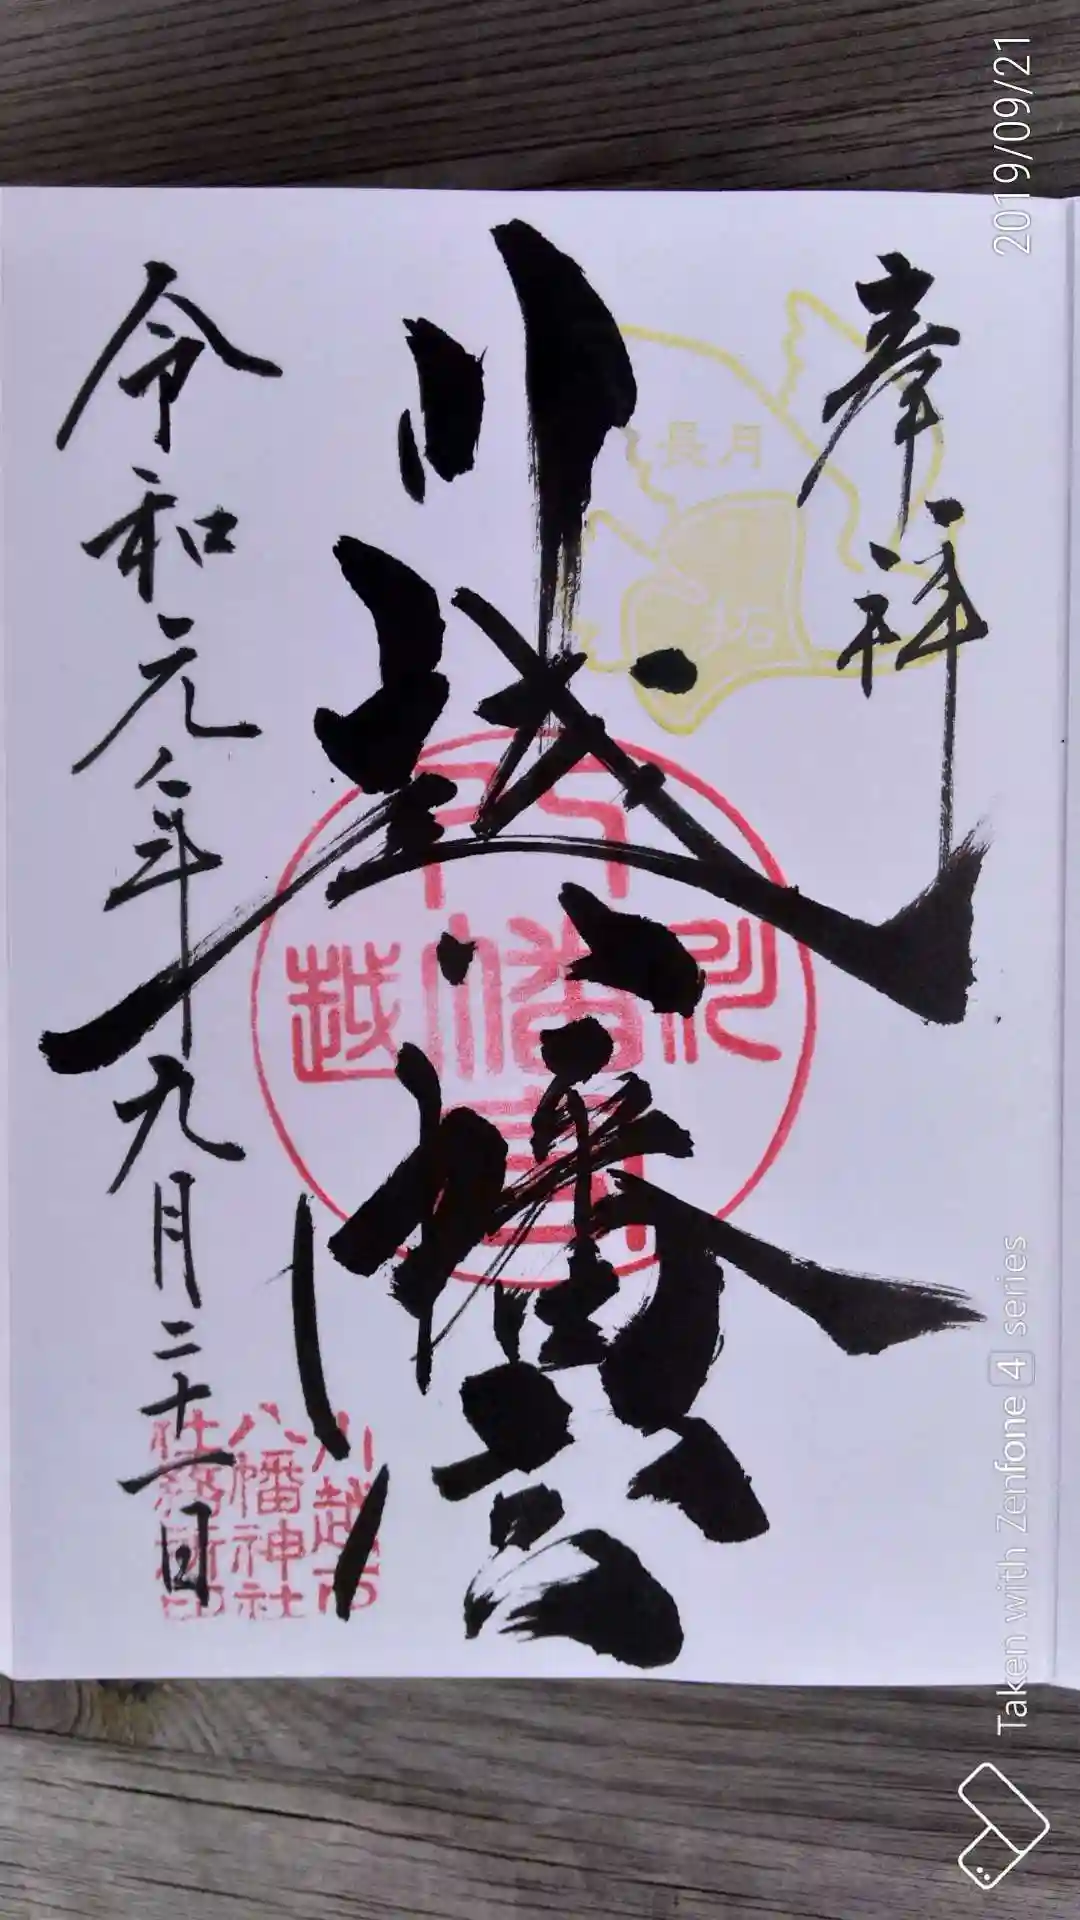 奉拝
長月
拓
川越八幡宮
八
川幡越
宮
令和元年九月二十一日
川越市
八幡神社
社務所印
2019/09/21
Taken with Zenfone 4 series